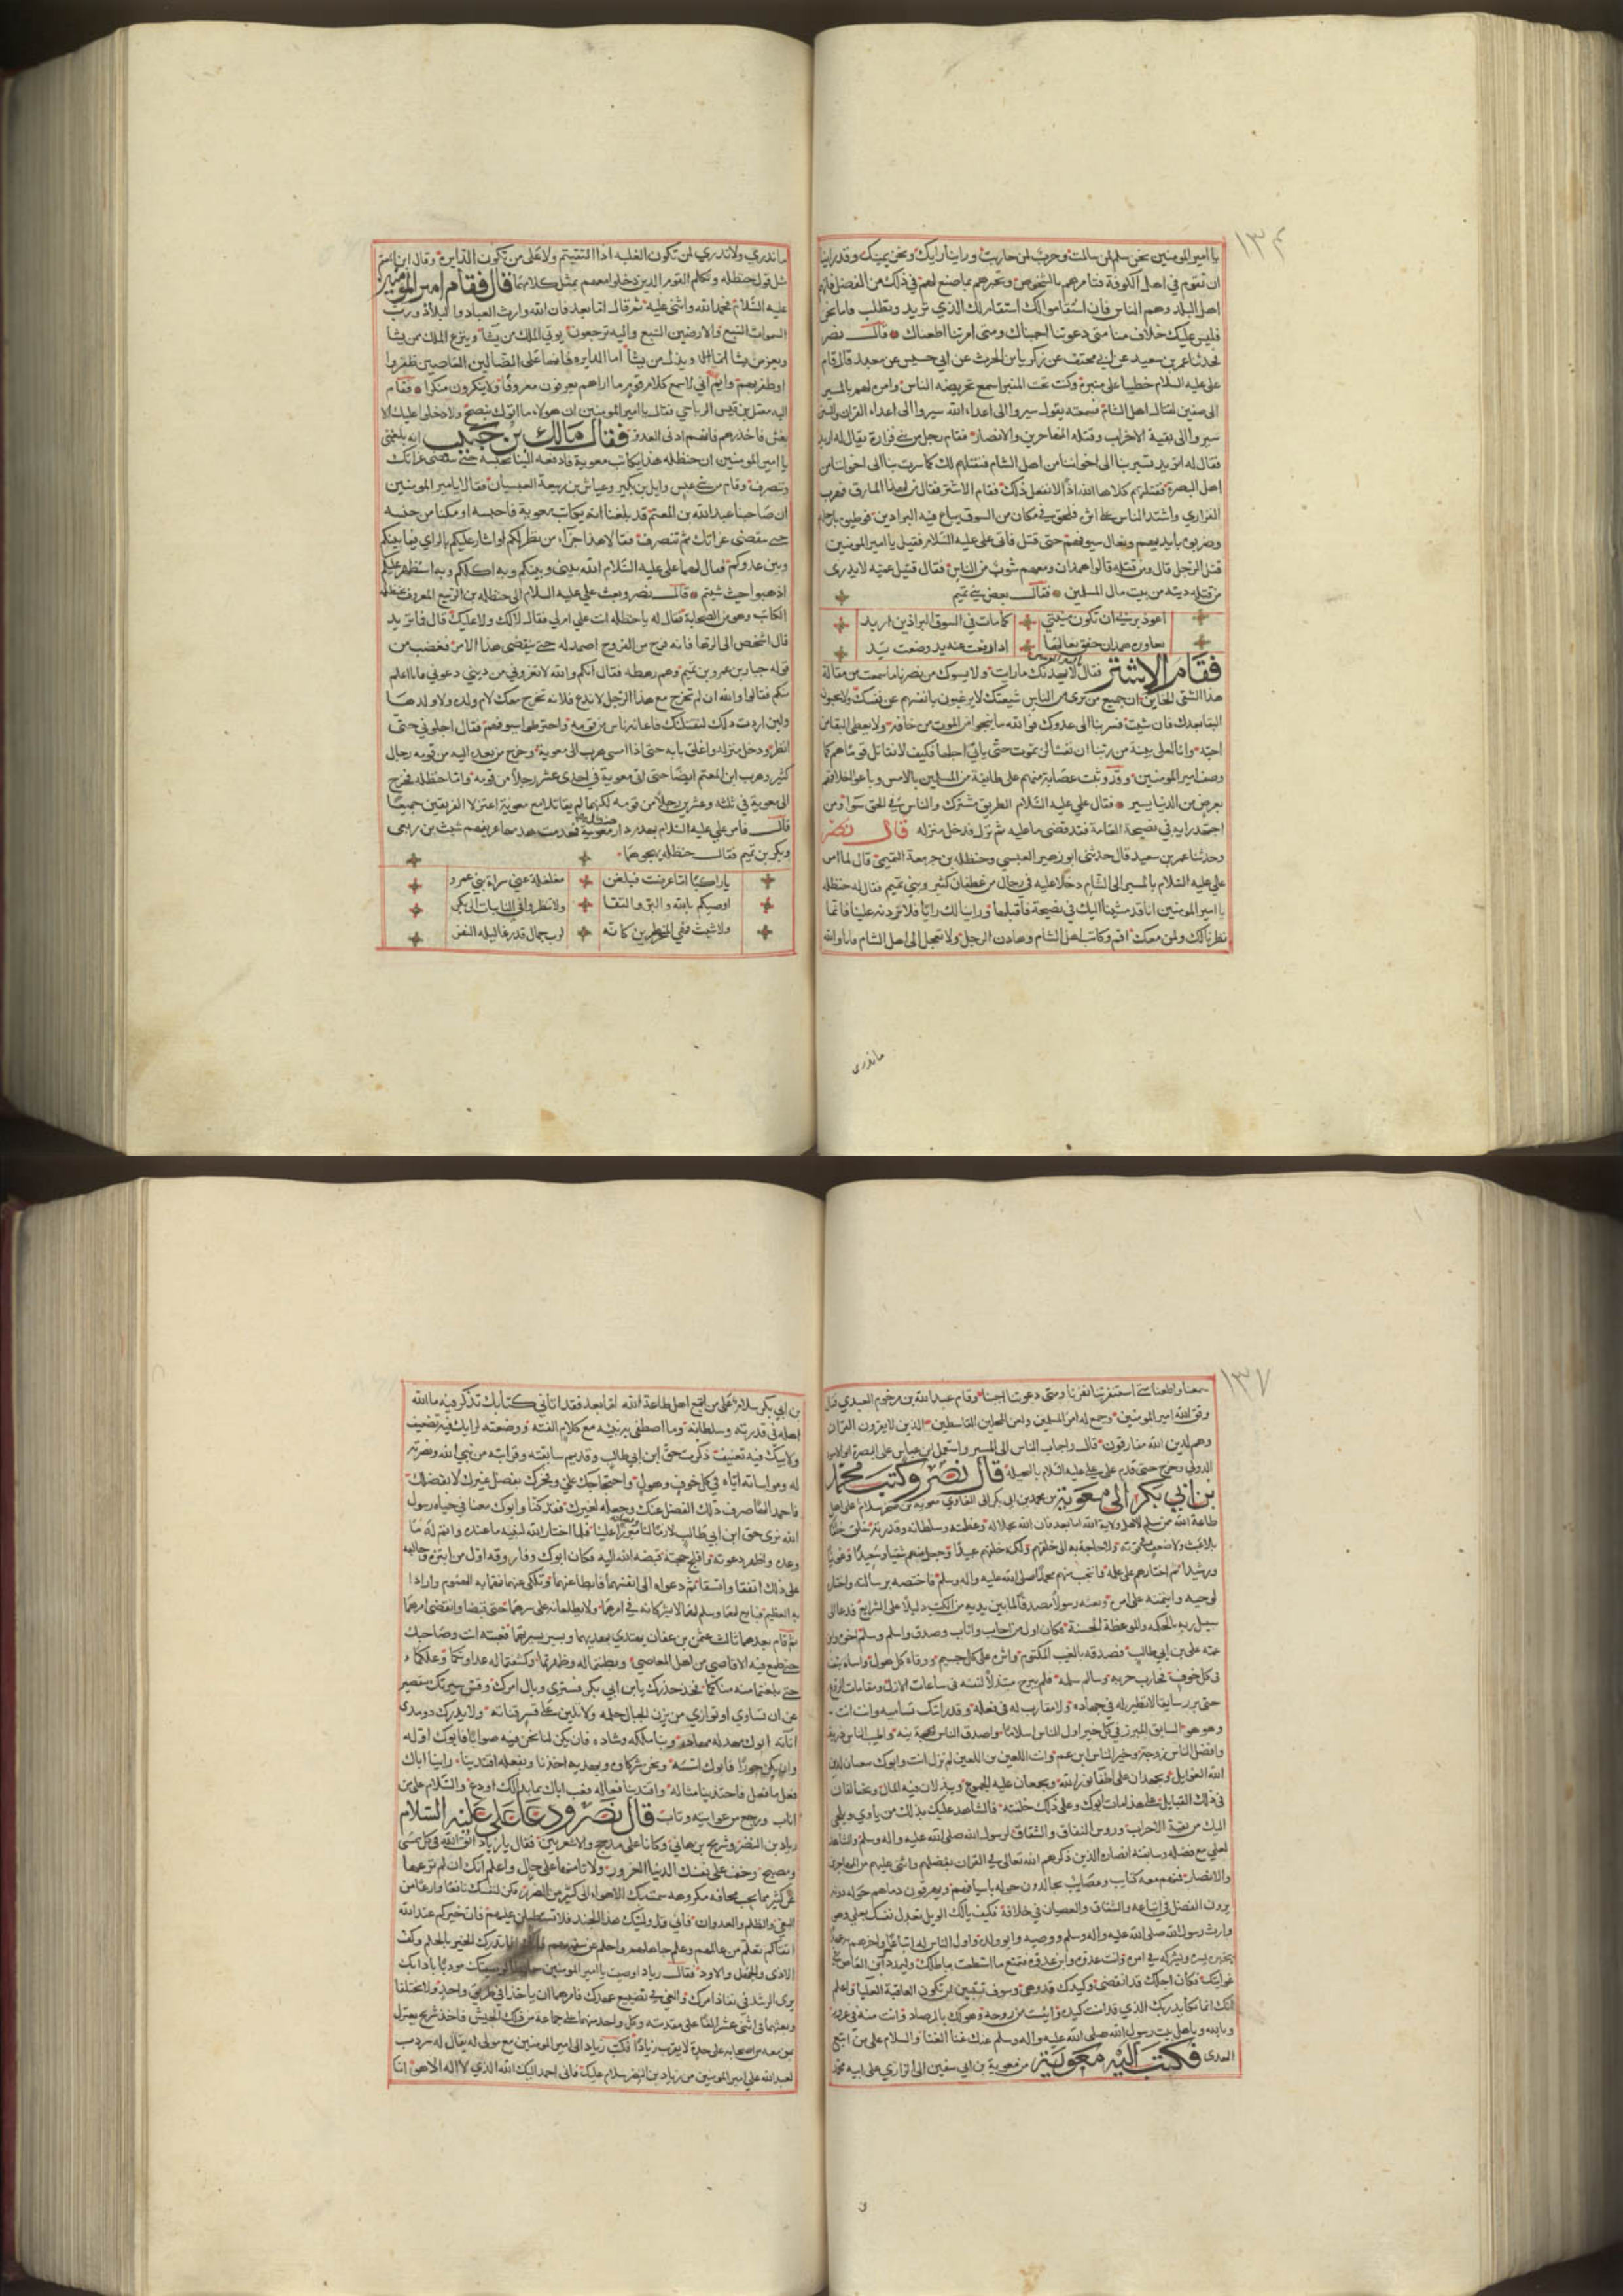 ١٣٤
يا امير المومنين نحن سلم لمن سالمت وحرب لمن حاربت وراينا رايك ونحن يمينك وقد راينا
ان تقوم في اهل الكوفة فتامرهم بالشخوص وتخبرهم بما صنع لهم في ذلك من الفضل فانهم
اهل البلد وهم الناس فان استقاموا لك استقام لك الذي تريد وتطلب فاما نحن
فليس عليك خلاف منا متى دعوتنا اجبناك ومتى امرتنا اطعناك قالــ نصر
فحدثنا عمر بن سعيد عن ابي مخنف عن زكريا بن الحرث عن ابي حسيس عن معبد قال قام
علي عليه السلام خطيبا على منبره وكنت تحت المنبر اسمع تحريضه الناس وامره لهم بالمسير
الى صفين لقتال اهل الشام فسمعته يقول سيروا الى اعداء الله سيروا الى اعداء القران والسنن
سيروا الى بقية الاحزاب وقتلة المهاجرين والانصار فقام رجل من بني فزارة يقال له اربد
فقال له اتريد تسير بنا الى اخواننا من اهل الشام فنقتلهم لك كما سرت بنا الى اخواننا من
اهل البصرة فقتلتهم كلا ها الله اذا لا نفعل ذلك فقام الاشتر فقال من لهذا المارق فهرب
الفزاري واشتد الناس على اثره فلحق في مكان من السوق يباع فيه البراذين فوطيوه بارجلهم
وضربوه بايديهم ونعال سيوفهم حتى قتل فاتى علي عليه السلام فقيل يا امير المومنين
قتل الرجل قال ومن قتله قالوا همدان ومعهم شوب من الناس فقال قتيل عميه لا يدرى
من قتله ديته من بيت مال المسلمين فقالــ بعض بني تميم
اعوذ بربي ان تكون منيتي كما مات في السوق البراذين اربد
تعاوره همدان خفق نعالها اذا رفعت عنه يد وضعت يد
فقام الاشتر فقال لا يهدنك ما رايت ولا يسوك من نصرنا ما سمعت من مقالة
هذا الشقي الخاين ان جميع من ترى من الناس شيعتك لا يرغبون بانفسهم عن نفسك ولا يحبون
البقا بعدك فان شيت فسر بنا الى عدوك فو الله ما ينجو امرء من الموت من خافه ولا يعطى البقا من
احبه وانا لعلى بينة من ربنا ان نفسا لن تموت حتى ياتي اجلها فكيف لا نقاتل قوما هم كما
وصف امير المومنين وقد وثبت عصابة منهم على طايفة من المسلمين بالامس وباعوا خلاقهم
بعرض من الدنيا يسير فقال علي عليه السلام الطريق مشترك والناس في الحق سوا ومن
اجتهد رايه في نصيحة العامة فقد قضى ما عليه ثم نزل فدخل منزله قال نصر
وحدثنا عمر بن سعيد قال حدثني ابو زهير العبسي وحنظله بن ربيعة التميمي قال لما امر
علي عليه السلام بالمسير الى الشام دخلا عليه في رجال من غطفان كثير وبني تميم فقال له حنظله
يا امير المومنين انا قد مشينا اليك في نصيحة فاقبلها وراينا لك رايا فلا ترده علينا فانما
نظرنا لك ولمن معك اقم وكاتب اهل الشام وهادن الرجل ولا تعجل الى اهل الشام فانا والله
ما ندري
ما ندري ولا تدري لمن تكون الغلبه اذا التقيتم ولا على من تكون الدايره وقال ابن المعتم
مثل قول حنظله وتكلم القوم الذين دخلوا معهم بمثل كلامهما قال فقام امير المومنين
عليه السلام فحمد الله واثنى عليه ثم قال اما بعد فان الله وارث العباد والبلاد ورب
السموات السبع والارضين السبع واليه ترجعون يوتي الملك من يشا وينزع الملك ممن يشا
ويعز من يشا ويذل من يشا اما الدايره فانها على الضالين العاصين ظفروا
او ظفر بهم وايم الله اني لاسمع كلام قوم ما اراهم يعرفون معروفا ولا ينكرون منكرا فقام
اليه معقل بن قيس الرياحي فقال يا امير المومنين ان هولاء ما اتوك بنصح ولا دخلوا عليك الا
بغش فاحذرهم فانهم ادنى العدو فقال مالك بن حبيب انه بلغني
يا امير المومنين ان حنظله هذا يكاتب معوية فادفعه الينا نحبسه حتى تنقضي غزاتك
وتنصرف وقام من بني عبس وايل بن بكير وعياش بن ربيعة العبسيان فقالا يا امير المومنين
ان صاحبنا عبد الله بن المعتم قد بلغنا انه يكاتب معوية فاحبسه او مكنا من حبسه
حتى تنقضي غزاتك ثم تنصرف فقالا هذا جزاء من نظر لكم واشار عليكم بالراي فيما بينكم
وبين عدوكم فقال لهما علي عليه السلام الله بيني وبينكم وبه اكلكم وبه استظهر عليكم
اذهبوا حيث شيتم قالــ نصر وبعث علي عليه السلام الى حنظله بن الربيع المعروف بحنظله
الكاتب وهو من الصحابة فقال له يا حنظله انت علي ام لي فقال لا لك ولا عليك قال فما تريد
قال اشخص الى الرها فانه فرج من الفروج اصمد له حتى ينقضي هذا الامر فغضب من
قوله خيار بن عمرو بن تميم وهم رهطه فقال انكم والله لا تغروني من ديني دعوني فانا اعلم
منكم فقالوا والله ان لم تخرج مع هذا الرجل لا ندع فلانه تخرج معك لام ولده ولا ولدها
ولين اردت ذلك لنقتلنك فاعانه ناس من قومه واخترطوا سيوفهم فقال اجلوني حتى
انظر ودخل منزله واغلق بابه حتى اذا امسى هرب الى معوية وخرج من بعده اليه من قومه رجال
كثير وهرب ابن المعتم ايضا حتى اتى معوية في احدى عشر رجلا من قومه واما حنظله فخرج
الى معوية في ثلثة وعشرين رجلا من قومه لكنهما لم يقاتلا مع معوية اعتزلا الفريقين جميعا
قالــ فامر علي عليه السلام بهدم دار حنظله فهدمت هدمها عريفهم شبث بن ربعي
وبكر بن تميم فقالــ حنظله يهجوهما
يا راكبا اما عرضت فبلغن مغلغلة عني سراة بني عمرو
اوصيكم بالله والبر والتقا ولا تنظروا في النايبات الى بكر
ولا شبث ذي المنخرين كانه ازب جمال قد رغا ليله النفر
١٣٧
سمعنا واطعنا متى استنفرتنا نفرنا ومتى دعوتنا اجبنا وقام عبد الله بن مرحوم العبدي فقال
وفق الله امير المومنين وجمع له امر المسلمين ولعن المحلين القاسطين الذين لا يقرون القران
وهم لدين الله مفارقون قالــ واجاب الناس الى المسير واستعمل ابن عباس على البصرة ابو الاسود
الدولي وخرج حتى قدم على علي عليه السلام بالنخيلة قال نصر وكتب محمد
بن ابي بكر الى معوية من محمد بن ابي بكر الى الغاوي معوية بن صخر سلام على اهل
طاعة الله ممن سلم لاهل ولاية الله اما بعد فان الله بجلاله وعظمته وسلطانه وقدرته خلق خلقا
بلا عبث ولا ضعف في قوته ولا حاجة به الى خلقهم ولكنه خلقهم عبيدا وجعل منهم شقيا وسعيدا وغويا
ورشيدا ثم اختارهم على علمه وانتجب منهم محمدا صلى الله عليه واله وسلم فاختصه برسالته واختاره
لوحيه وايتمنه على امره وبعثه رسولا مصدقا لما بين يديه من الكتب دليلا على الشرايع فدعا الى
سبيل ربه بالحكمه والموعظة الحسنة فكان اول من اجاب واناب وصدق واسلم وسلم اخوه وابن
عمه علي بن ابي طالب فصدقه بالغيب المكتوم واثره على كل حميم ووقاه كل هول وواساه بنفسه
في كل خوف فحارب حربه وسالم سلمه فلم يبرح مبتذلا لنفسه في ساعات الازل ومقامات الروع
حتى برز سابقا لا نظير له في جهاده ولا مقارب له في فعله وقد رايتك تساميه وانت انت
وهو هو السابق المبرز في كل خير اول الناس اسلاما واصدق الناس نية واطيب الناس ذرية
وافضل الناس زوجة وخير الناس ابن عم وانت اللعين بن اللعين لم تزل انت وابوك تبغيان لدين
الله الغوايل وتجهدان على اطفا نور الله وتجمعان عليه الجموع وتبذلان فيه المال وتحالفان
في ذلك القبايل على هذا مات ابوك وعلى ذلك خلفته فالشاهد عليك بذلك من ياوي ويلجي
اليك من بقية الاحزاب وروس النفاق والشقاق لرسول الله صلى الله عليه واله وسلم والشاهد
لعلي مع فضله وسابقته انصاره الذين ذكرهم الله تعالى في القران بفضلهم واثنى عليهم من المهاجرين
والانصار فهم معه كتايب وعصايب يجالدون حوله باسيافهم ويهرقون دماهم حوله دونه
يرون الفضل في اتباعه والشقاق والعصيان في خلافه فكيف يالك الويل تعدل نفسك بعلي وهو
وارث رسول الله صلى الله عليه واله وسلم ووصيه وابو ولده واول الناس له اتباعا واخرهم به عهدا
يخبره بسره ويشركه في امره وانت عدوه وابن عدوه فتمتع ما استطعت بباطلك وليمدك ابن العاص في
غوايتك فكان اجلك قد انقضى وكيدك قد وهى وسوف تتبين لمن تكون العاقبة العليا واعلم
انك انما تكايد ربك الذي قد امنت كيده وايست من روحه وهو لك بالمرصاد وانت منه في غرور
وبالله وباهل بيت رسول الله صلى الله عليه واله وسلم عنك غنا الغنا والسلام على من اتبع
الهدى فكتب اليه معوية من معوية بن ابي سفين الى الزاري على ابيه محمد
بن ابي بكر سلام على من اتبع اهل طاعة الله اما بعد فقد اتاني كتابك تذكر فيه ما الله
اهله في قدرته وسلطانه وما اصطفى به نبيه مع كلام الفته ووضعته لرايك فيه تضعيف
ولابيك فيه تعنيف ذكرت حق ابن ابي طالب وقديم سابقته وقرابته من نبي الله ونصرته
له ومواساته اياه في كل خوف وهول واحتجاجك علي وفخرك بفضل غيرك لا بفضلك
فاحمد الها صرف ذلك الفضل عنك وجعله لغيرك فقد كنا وابوك معنا في حياة رسول
الله نرى حق ابن ابي طالب لازما لنا وفضله مبرزا علينا فلما اختار الله لنبيه ما عنده واتم له ما
وعده واظهر دعوته وافلج حجته قبضه الله اليه فكان ابوك وفاروقه اول من ابتزه وخالفه
على ذلك اتفقا واتسقا ثم دعواه الى انفسهما فابطا عنهما وتلكى عنهما فهما به الهموم وارادا
به العظيم فبايع لهما وسلم لهما لا يشركانه في امرهما ولا يطلعانه على سرهما حتى قبضا وانقضى امرهما
ثم قام بعدهما ثالث عثمن بن عفان يهتدي بهديهما ويسير بسيرتهما فعبته انت وصاحبك
حتى طمع فيه الاقاصي من اهل المعاصي وبطنتما له وظهرتما وكشفتما له عداوتكما وغلكما
حتى بلغتما منه مناكما فخذ حذرك يابن ابي بكر فسترى وبال امرك وقس شبرك بفترك تقصر
عن ان تساوي او توازي من يزن الجبال حلمه ولا تلين على قسر قناته ولا يدرك ذو مدى
اناته ابوك مهد له مهاده وبنا ملكه وشاده فان يكن لنا نحن فيه صوابا فابوك اوله
وان يكن جورا فابوك اسسه ونحن شركاوه وبهديه اخذنا وبفعله اقتدينا راينا اباك
فعل ما فعل فاحتذينا مثاله واقتدينا فعاله فعب اباك بما بدا لك او دع والسلام على من
اناب ورجع من غوايته وتاب قال نصر ودعا علي عليه السلام
زياد بن النضر وشريح بن هاني وكانا على مذحج والاشعريين فقال يا زياد اتق الله في كل ممسى
ومصبح وخف على نفسك الدنيا الغرور ولا تامنها على حال واعلم انك ان لم تزعها
عن كثير مما يحب مخافة مكروهه سمت بك الاهواء الى كثير من الضرر فكن لنفسك مانعا وازعا من
البغي والظلم والعدوان فاني قد وليتك هذا الجند فلا تستطيلن عليهم فان خيركم عند الله
اتقاكم تعلم من عالمهم وعلم جاهلهم واحلم عن سفيههم فانك انما تدرك الخير بالحلم وكف
الاذى والجهل والاود فقالــ زياد اوصيت يا امير المومنين حافظا لوصيتك مودبا بادابك
يرى الرشد في نفاذ امرك والغي في تضييع عهدك فامرهما ان ياخذا في طريق واحد ولا يختلفا
وبعثهما في اثنى عشر الفا على مقدمته وكل واحد منهما على جماعة من ذلك الجيش فاخذ شريح يعتزل
بمن معه من اصحابه على حدة لا يقرب زيادا فكتب زياد الى امير المومنين مع مولى له يقال له شوذب
لعبد الله علي امير المومنين من زياد بن النضر سلام عليك فاني احمد اليك الله الذي لا اله الا هو اما